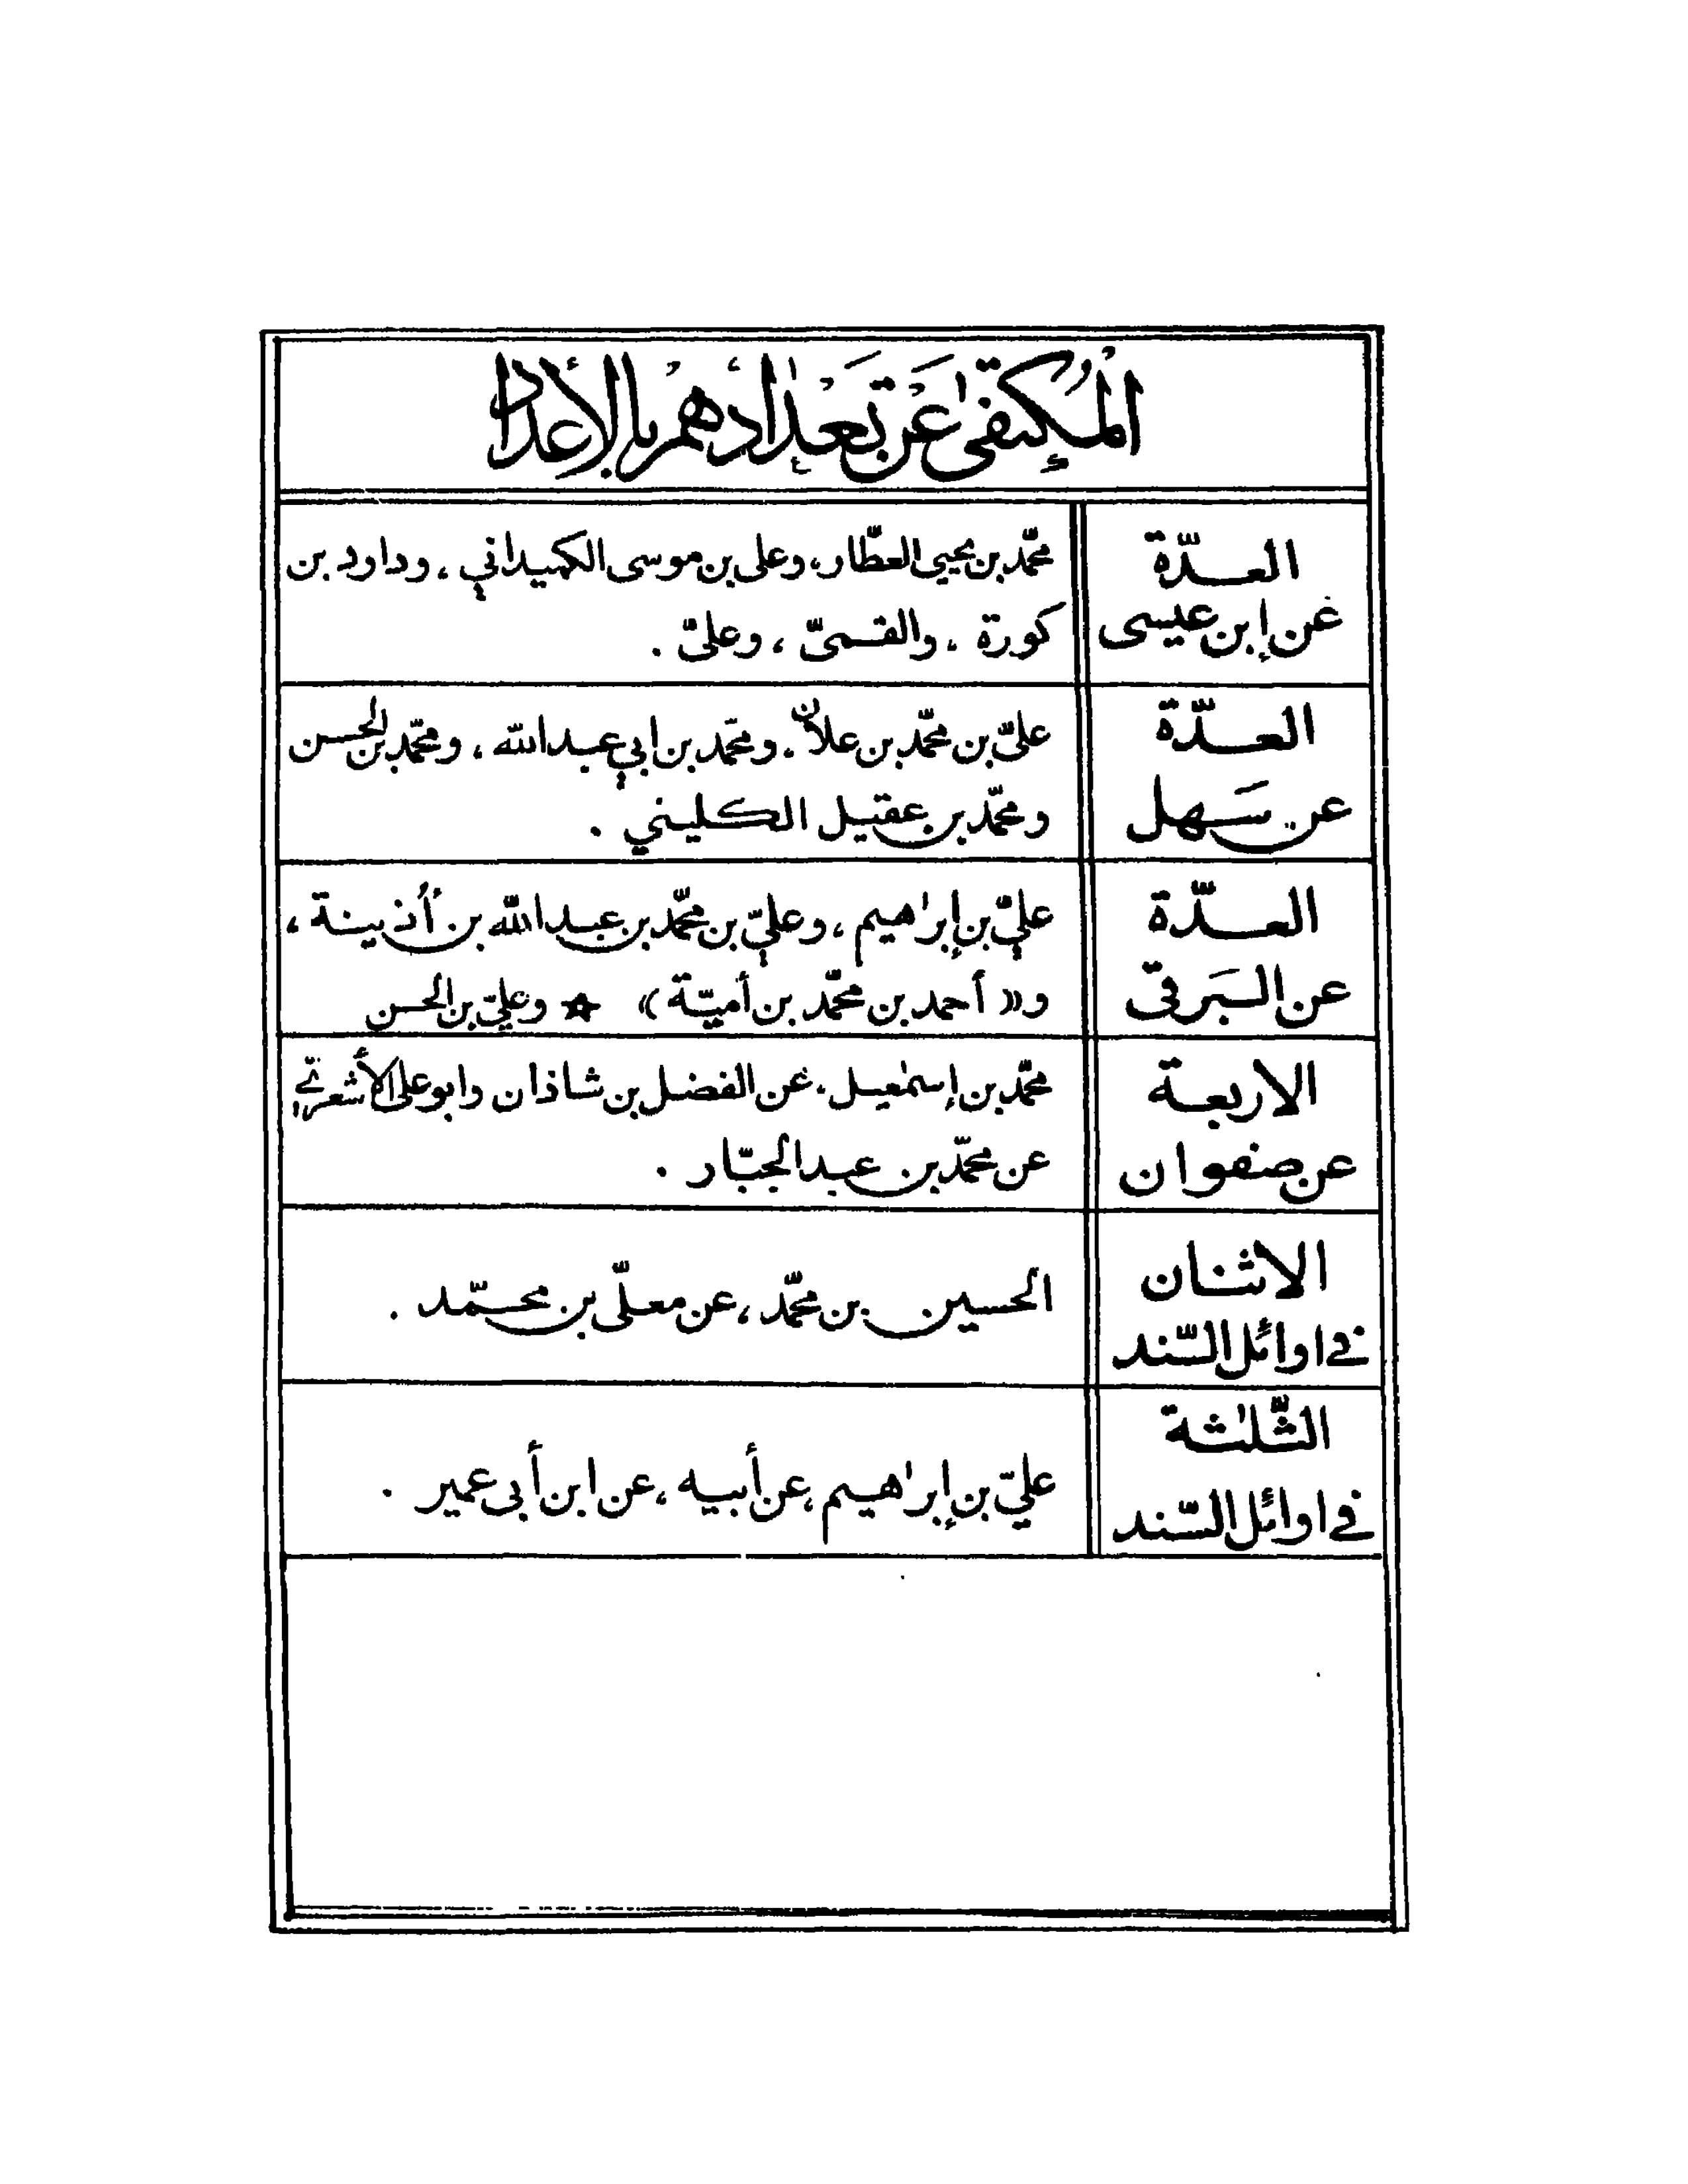 المُكتفىٰ عَن تَعدٰادهم بالأعداد
العدّة
عن إبن عيسى
محمّد بن يحيي العطّار، وعلى بن موسى الكميداني، وداود بن
كورة، والقمىّ، وعلىّ.
العدّة
عن سَهل
علىّ بن محمّد بن علان، ومحمّد بن ابي عبدالله، ومحمّد بن الحسن
ومحمّد بن عقيل الكليني.
العدّة
عن البَرقىّ
عليّ بن إبرٰاهيم، وعليّ بن محمّد بن عبدالله بن أُذينة،
و«أحمد بن محمّد بن أميّة» ☆ وعليّ بن الحسن
الاربعة
عن صفوان
محمّد بن إسمٰعيل، عن الفضل بن شاذان وابو على الأشعريّ
عن محمّد بن عبدالجبّار.
الاثنان
في اوائل السّند
الحسين بن محمّد، عن معلّى بن محمّد.
الثّلٰثة
في اوائل السّند
عليّ بن إبرٰاهيم، عن أبيه، عن ابن أبى عمير.